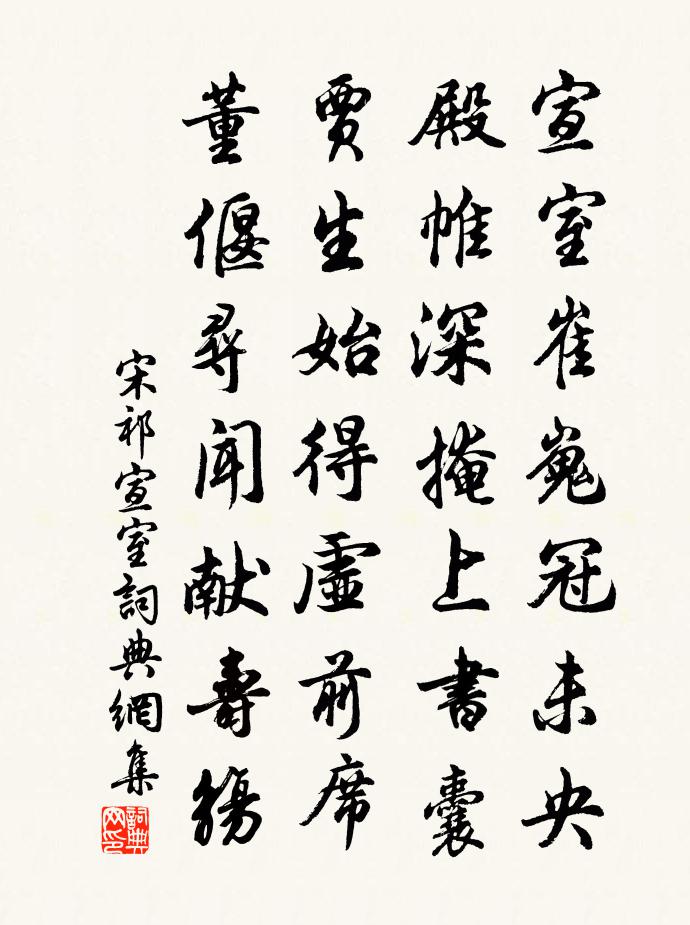 宣室崔嵬冠未央
殿帷深掩上書囊
賈生始得虛前席
董偃尋聞献壽觴
宋祁宣室詞典網集
詞典网印